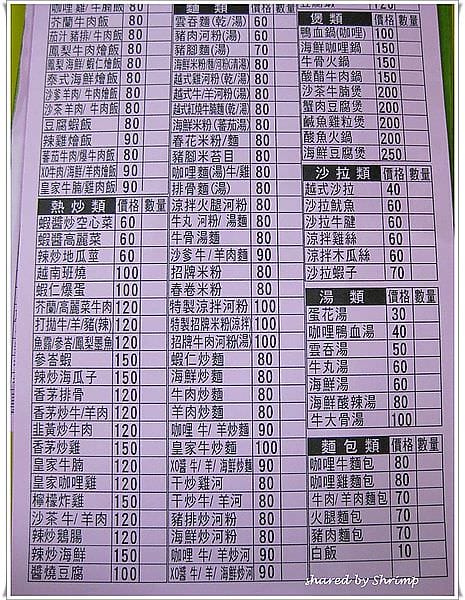 芥蘭牛肉飯 80
茄汁豬排/牛肉飯 80
鳳梨牛肉燴飯 80
鳳梨海鮮/蝦仁燴飯 80
泰式海鮮燴飯 80
沙爹羊肉/牛肉燴飯 80
沙茶羊肉/牛肉燴飯 80
豆腐蝦飯 80
辣雞燴飯 90
蕃茄牛肉/爆牛肉飯 80
XO牛肉/海鮮/雞燴飯 90
皇家牛腩/雞肉飯 90
熱炒類 價格 數量
蝦醬炒空心菜 60
蝦醬高麗菜 60
辣炒地瓜葉 60
越南班燒 100
蝦仁爆蛋 100
芥蘭/高麗菜牛肉 120
打拋牛/羊/豬(辣) 120
魚露/參峇/鳳梨墨魚 120
參峇蝦 150
辣炒海瓜子 150
香茅排骨 120
香茅炒牛/羊肉 120
韭黃炒牛肉 120
香茅炒雞 150
皇家牛腩 120
皇家咖哩雞 120
檸檬炸雞 150
沙茶牛/羊肉 120
辣炒鵝腸 120
辣炒海鮮 150
醬燒豆腐 100
麵類 價格 數量
雲吞麵(乾/湯) 60
豬肉河粉(湯) 60
豬腳麵(湯) 70
海鮮米粉/麵/河粉(清湯) 80
越式雞河粉(乾/湯) 80
越式牛/羊河粉(乾/湯) 80
越式紅燒牛腩麵(乾/湯) 80
海鮮米粉(蕃茄湯) 80
春花米粉/麵 80
豬腳米苔目 80
咖哩麵(湯)牛/雞 80
排骨麵(湯) 80
涼拌火腿河粉 80
牛丸河粉/湯麵 80
牛骨湯麵 80
招牌米粉 80
春卷米粉 80
特製涼拌河粉 100
特製招牌米粉(涼拌) 100
招牌牛肉河粉(湯) 100
蝦仁炒麵 80
海鮮炒麵 80
牛肉炒麵 80
羊肉炒麵 80
咖哩牛/羊炒麵 90
XO醬牛/羊/海鮮炒麵 90
干炒雞河 80
干炒牛/羊河 80
豬排炒河粉 80
海鮮炒河粉 80
咖哩牛/羊炒河 90
XO醬牛/羊/海鮮炒河 90
煲類 價格 數量
鴨血鍋(咖哩) 100
海鮮咖哩鍋 150
牛骨火鍋 150
酸醋牛肉鍋 150
沙茶牛腩煲 200
蟹肉豆腐煲 200
鹹魚雞粒煲 200
酸魚火鍋 200
海鮮豆腐煲 250
沙拉類 價格 數量
越式沙拉 40
沙拉魷魚 60
沙拉牛腱 60
涼拌雞絲 60
涼拌木瓜絲 60
沙拉蝦子 70
湯類 價格 數量
蛋花湯 30
咖哩鴨血湯 40
雲吞湯 50
牛丸湯 60
海鮮湯 60
海鮮酸辣湯 80
牛大骨湯 100
麵包類 價格 數量
咖哩牛麵包 80
咖哩雞麵包 80
牛肉/羊肉麵包 70
火腿麵包 70
豬肉麵包 70
白飯 10
shared by Shrimp